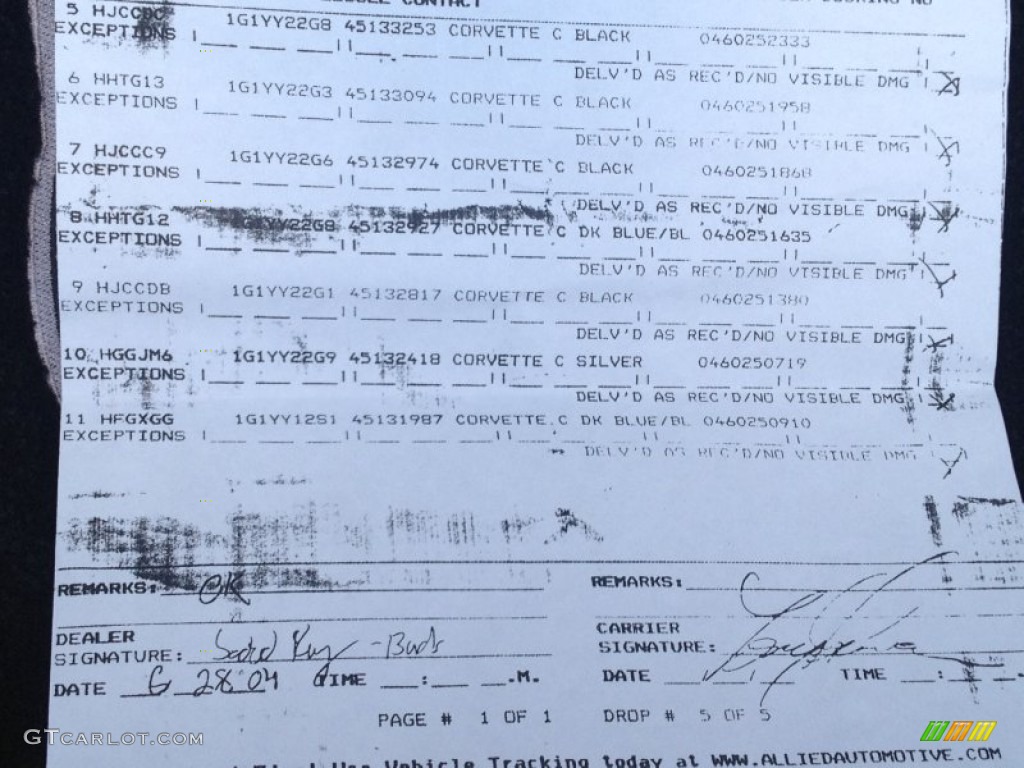 5 HJCCDC 1G1YY22G8 45133253 CORVETTE C BLACK 0460252333
EXCEPTIONS
DELV'D AS REC'D/NO VISIBLE DMG
6 HHTG13 1G1YY22G3 45133094 CORVETTE C BLACK 0460251958
EXCEPTIONS
DELV'D AS REC'D/NO VISIBLE DMG
7 HJCCC9 1G1YY22G6 45132974 CORVETTE C BLACK 0460251868
EXCEPTIONS
DELV'D AS REC'D/NO VISIBLE DMG
8 HHTG12 1G1YY22G8 45132927 CORVETTE C DK BLUE/BL 0460251635
EXCEPTIONS
DELV'D AS REC'D/NO VISIBLE DMG
9 HJCCDB 1G1YY22G1 45132817 CORVETTE C BLACK 0460251380
EXCEPTIONS
DELV'D AS REC'D/NO VISIBLE DMG
10 HGGJM6 1G1YY22G9 45132418 CORVETTE C SILVER 0460250719
EXCEPTIONS
DELV'D AS REC'D/NO VISIBLE DMG
11 HFGXGG 1G1YY12S1 45131987 CORVETTE C DK BLUE/BL 0460250910
EXCEPTIONS
DELV'D AS REC'D/NO VISIBLE DMG
REMARKS: OK REMARKS:
DEALER CARRIER
SIGNATURE: SIGNATURE:
DATE 6 28 04 TIME __:__ __.M. DATE TIME __:__
PAGE # 1 OF 1 DROP # 5 OF 5
Use Vehicle Tracking today at WWW.ALLIEDAUTOMOTIVE.COM
GTCARLOT.COM